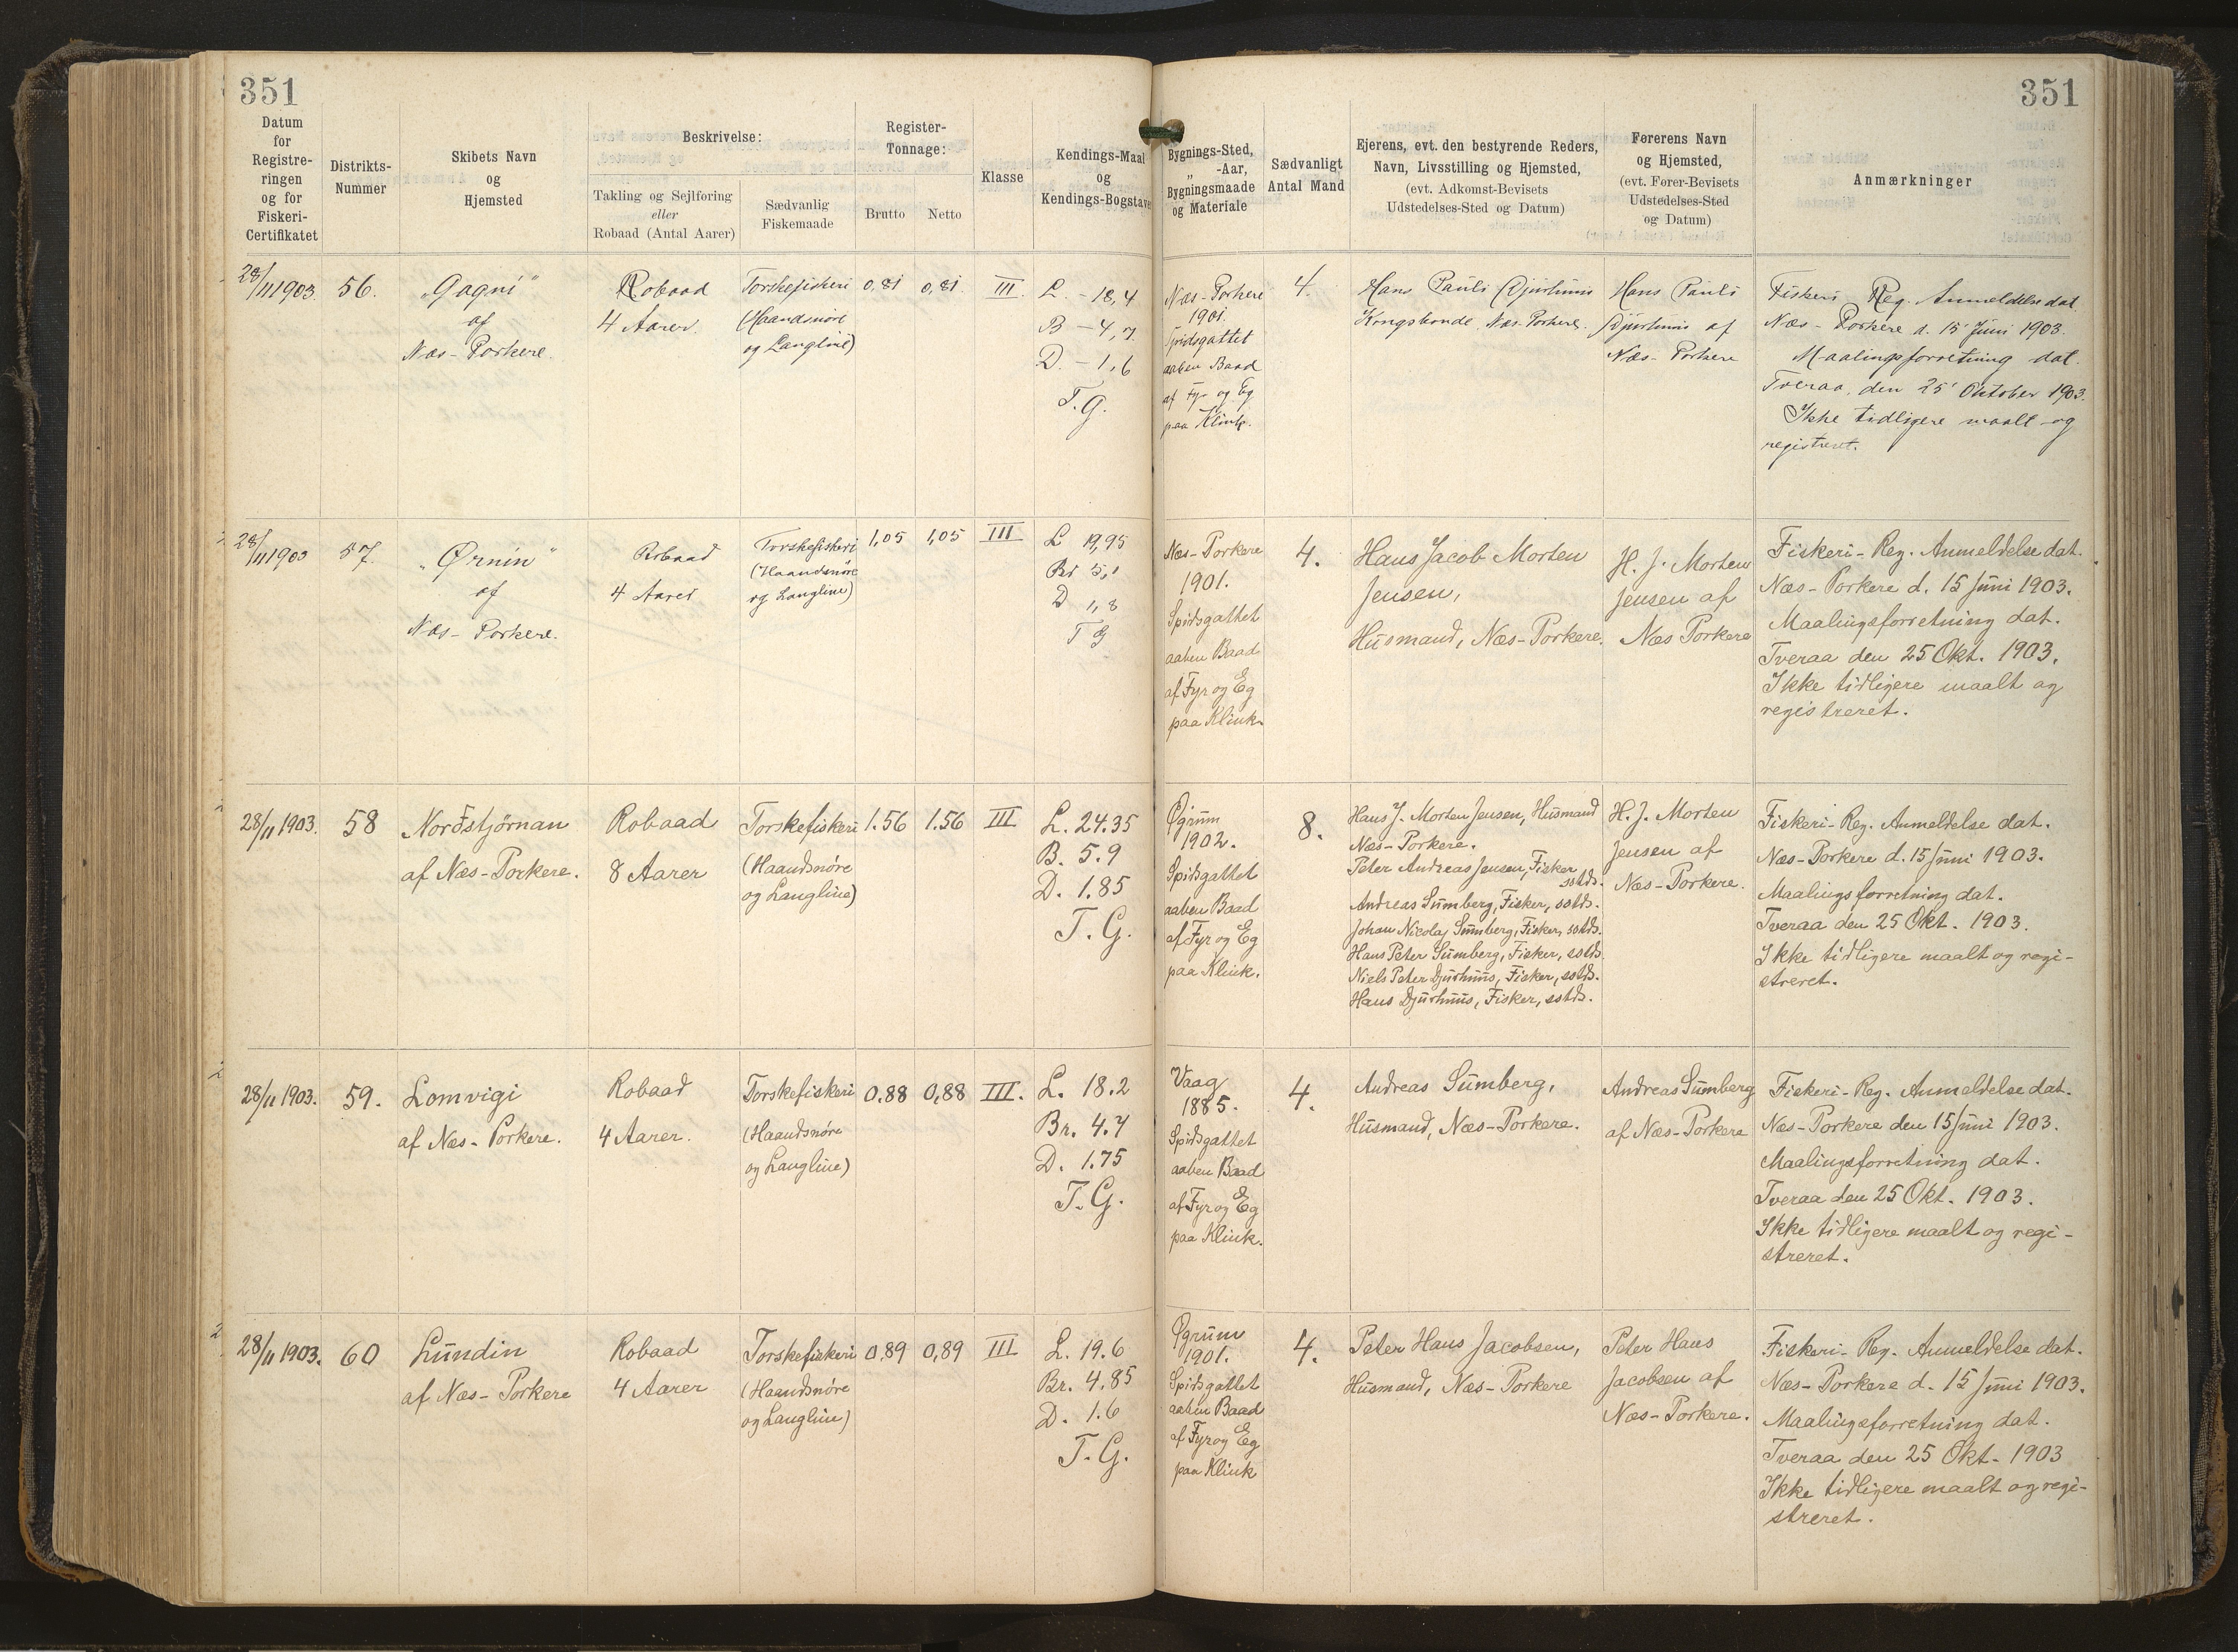 351
351
Datum
for
Registre-
ringen
og for
Fiskeri-
Certifikatet
Distrikts-
Nummer
Skibets Navn
og
Hjemsted
Beskrivelse:
Takling og Sejlføring
eller
Robaad (Antal Aarer)
Sædvanlig
Fiskemaade
Register-
Tonnage:
Brutto
Netto
Klasse
Kendings-Maal
og
Kendings-Bogstaver
Bygnings-Sted,
„ -Aar,
Bygningsmaade
og Materiale
Sædvanligt
Antal Mand
Ejerens, evt. den bestyrende Reders,
Navn, Livsstilling og Hjemsted,
(evt. Adkomst-Bevisets
Udstedelses-Sted og Datum)
Førerens Navn
og Hjemsted,
(evt. Fører-Bevisets
Udstedelses-Sted
og Datum)
Anmærkninger
28/11 1903.
56.
„Gagni"
af
Næs-Porkere.
Robaad
4 Aarer.
Torskefiskeri
(Haandsnøre
og Langline)
0,81
0,81
III.
L. - 18,4
B - 4,7
D. - 1,6
T. G.
Næs-Porkere
1901.
Spidsgattet
aaben Baad
af Fyr og Eg
paa Klink.
4.
Hans Pauli Djurhuus
Kongsbonde, Næs-Porkere.
Hans Pauli
Djurhuus af
Næs-Porkere
Fiskeri Reg. Anmeldelse dat.
Næs-Porkere d. 15 Juni 1903.
Maalingsforretning dat.
Tveraa, den 25' Oktober 1903.
Ikke tidligere maalt og
registreret.
28/11 1903
57.
„Ørnin"
af
Næs-Porkere.
Robaad
4 Aarer
Torskefiskeri
(Haandsnøre
og Langline)
1,05
1,05
III
L 19,95
Br 5,1
D 1,8
T G
Næs-Porkere
1901.
Spidsgattet
aaben Baad
af Fyr og Eg
paa Klink.
4.
Hans Jacob Morten
Jensen,
Husmand, Næs-Porkere.
H. J. Morten
Jensen af
Næs Porkere
Fiskeri-Reg. Anmeldelse dat.
Næs-Porkere d. 15 Juni 1903.
Maalingsforretning dat.
Tveraa den 25 Okt. 1903.
Ikke tidligere maalt og
registreret.
28/11 1903.
58
Norðstjørnan
af Næs-Porkere.
Robaad
8 Aarer
Torskefiskeri
(Haandsnøre
og Langline)
1.56
1.56
III
L. 24.35
B. 5.9
D. 1.85
T. G.
Øgrum
1902.
Spidsgattet
aaben Baad
af Fyr og Eg
paa Klink.
8.
Hans J. Morten Jensen, Husmand
Næs-Porkere.
Peter Andreas Jensen, Fisker
sstds.
Andreas Sumberg, Fisker, sstds.
Johan Nicolaj Sumberg, Fisker, sstds.
Hans Peter Sumberg, Fisker, sstds.
Niels Peter Djurhuus, Fisker, sstds.
Hans Djurhuus, Fisker, sstds.
H. J. Morten
Jensen af
Næs-Porkere.
Fiskeri-Reg. Anmeldelse dat.
Næs-Porkere d. 15 Juni 1903.
Maalingsforretning dat.
Tveraa den 25 Okt. 1903.
Ikke tidligere maalt og regi-
streret.
28/11 1903.
59.
Lomvigi
af Næs-Porkere.
Robaad
4 Aarer.
Torskefiskeri
(Haandsnøre
og Langline)
0.88
0,88
III.
L. 18.2
Br. 4.7
D. 1.75
T. G.
Vaag
1885.
Spidsgattet
aaben Baad
af Fyr og Eg
paa Klink.
4.
Andreas Sumberg,
Husmand, Næs-Porkere.
Andreas Sumberg
af Næs-Porkere
Fiskeri-Reg. Anmeldelse dat.
Næs-Porkere den 15 Juni 1903.
Maalingsforretning dat.
Tveraa den 25 Okt. 1903.
Ikke tidligere maalt og regi-
streret.
28/11 1903.
60
Lundin
af Næs-Porkere
Robaad
4 Aarer
Torskefiskeri
(Haandsnøre
og Langline)
0,89
0,89
III
L. 19.6
Br. 4,85
D. 1.6
T. G.
Øgrum
1901.
Spidsgattet
aaben Baad
af Fyr og Eg
paa Klink
4.
Peter Hans Jacobsen,
Husmand, Næs-Porkere
Peter Hans
Jacobsen af
Næs-Porkere.
Fiskeri-Reg. Anmeldelse dat.
Næs-Porkere d. 15 Juni 1903.
Maalingsforretning dat.
Tveraa den 25 Okt. 1903
Ikke tidligere maalt og regi-
streret.